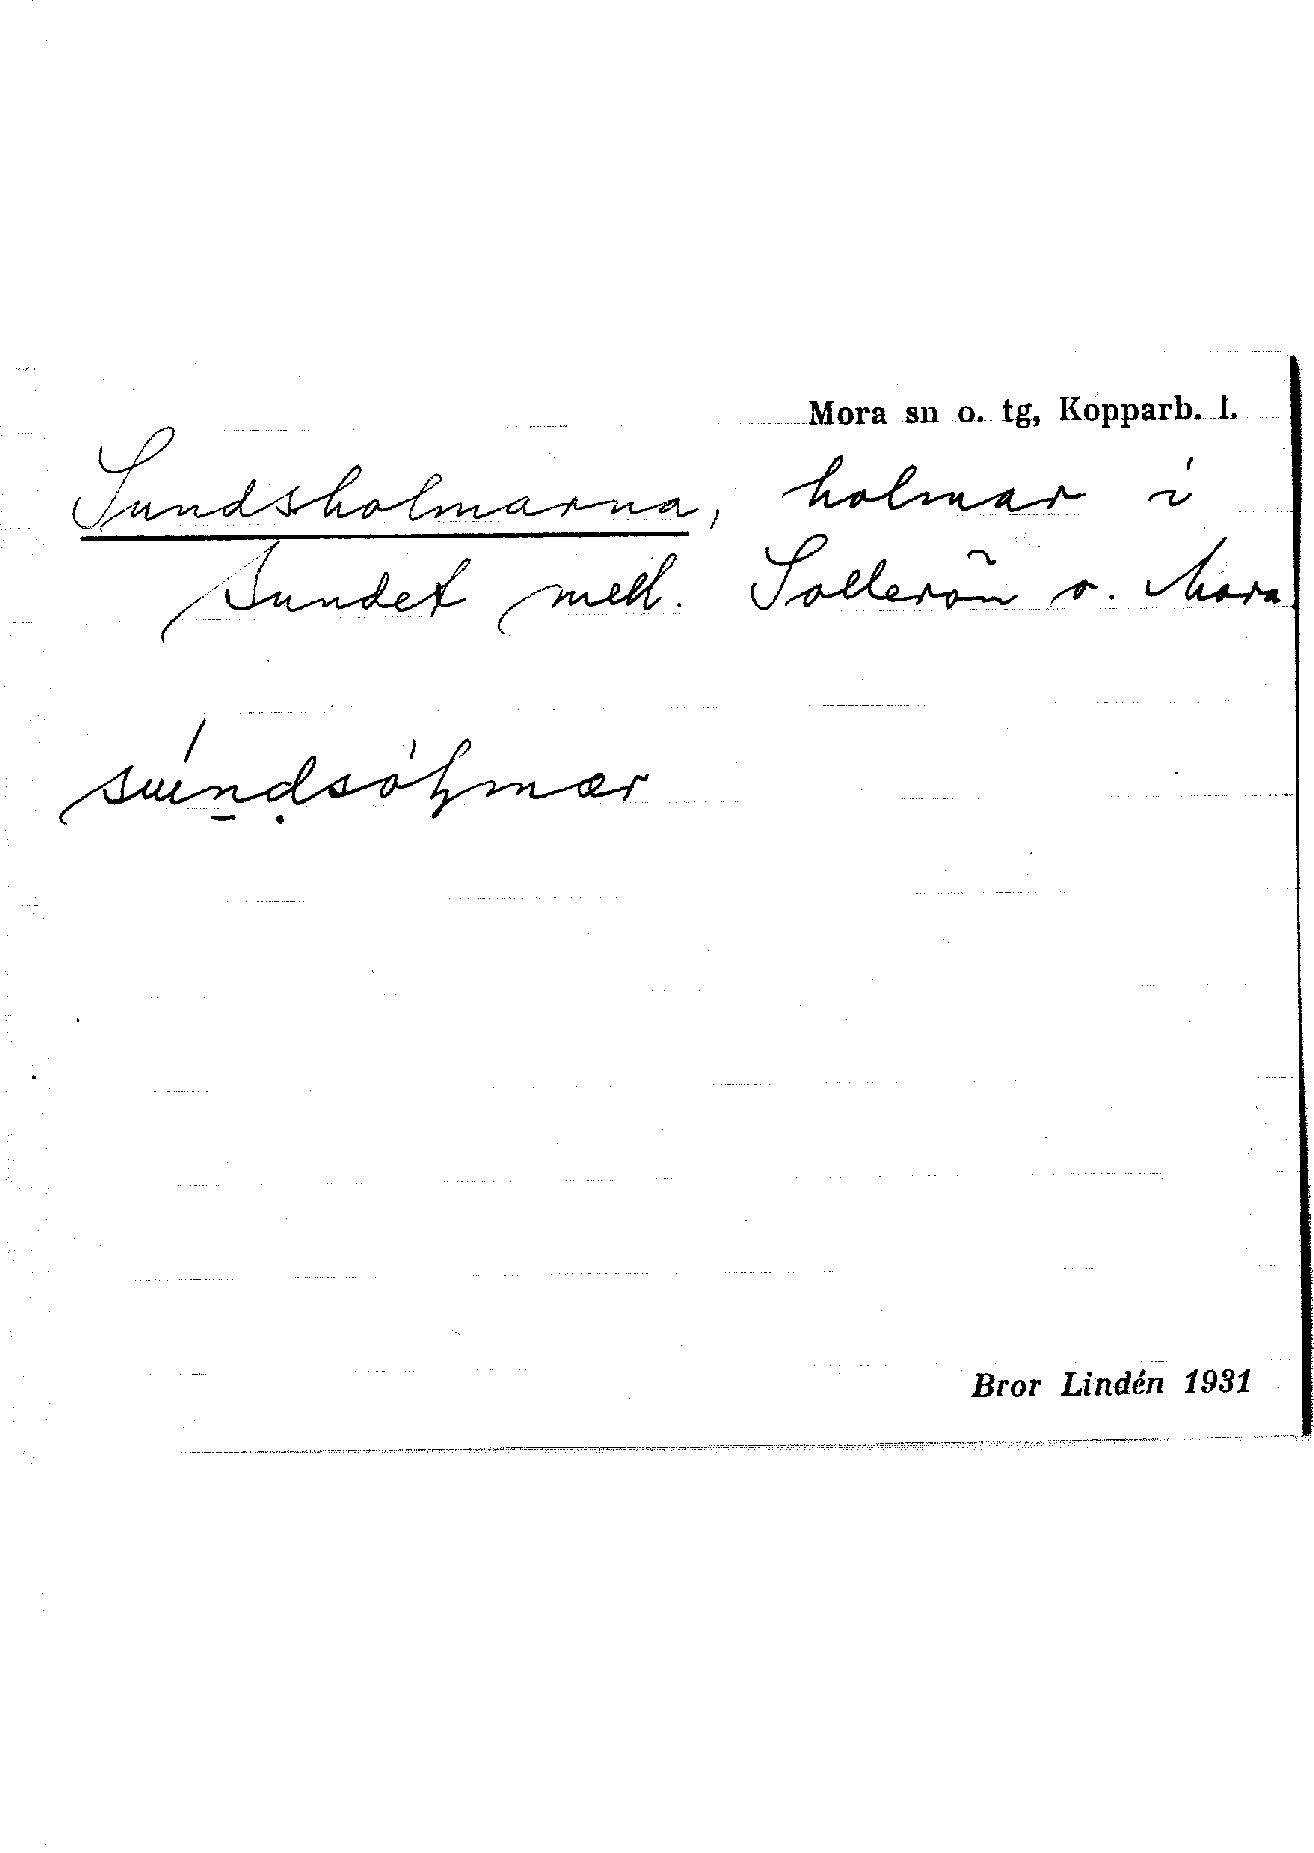 Mora sn o. tg, Kopparb. l.
Sundsholmarna, holmar i
Sundet mell. Sollerön o. Mora
Bror Lindén 1931